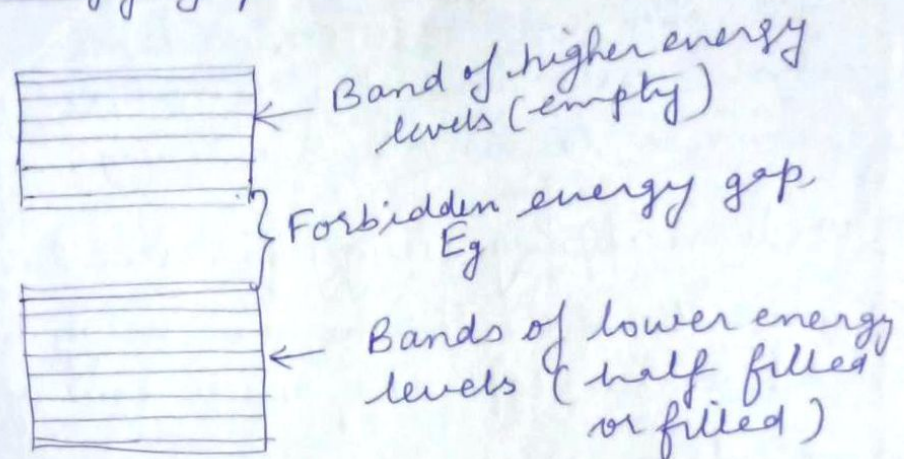 Band of higher energy
levels (empty)
Forbidden energy gap
Eg
Bands of lower energy
levels (half filled
or filled)